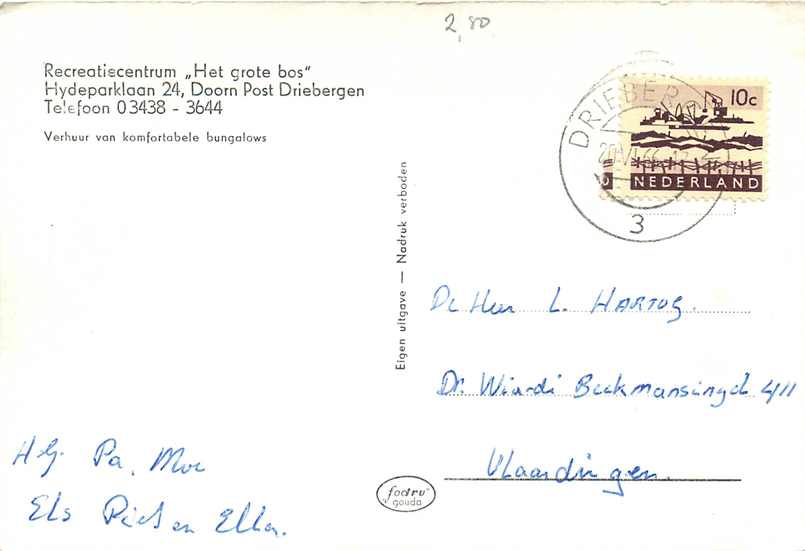 2,80
Recreatiecentrum „Het grote bos"
Hydeparklaan 24, Doorn Post Driebergen
Telefoon 03438 - 3644
Verhuur van komfortabele bungalows
DRIEBER
3
10c
NEDERLAND
Eigen uitgave — Nadruk verboden
De Heer L. HARTOG.
Dr. Wiardi Beckmansingel 4/11
Vlaardingen.
H.G. Pa, Moe
Els Piet en Ella.
fodru
gouda